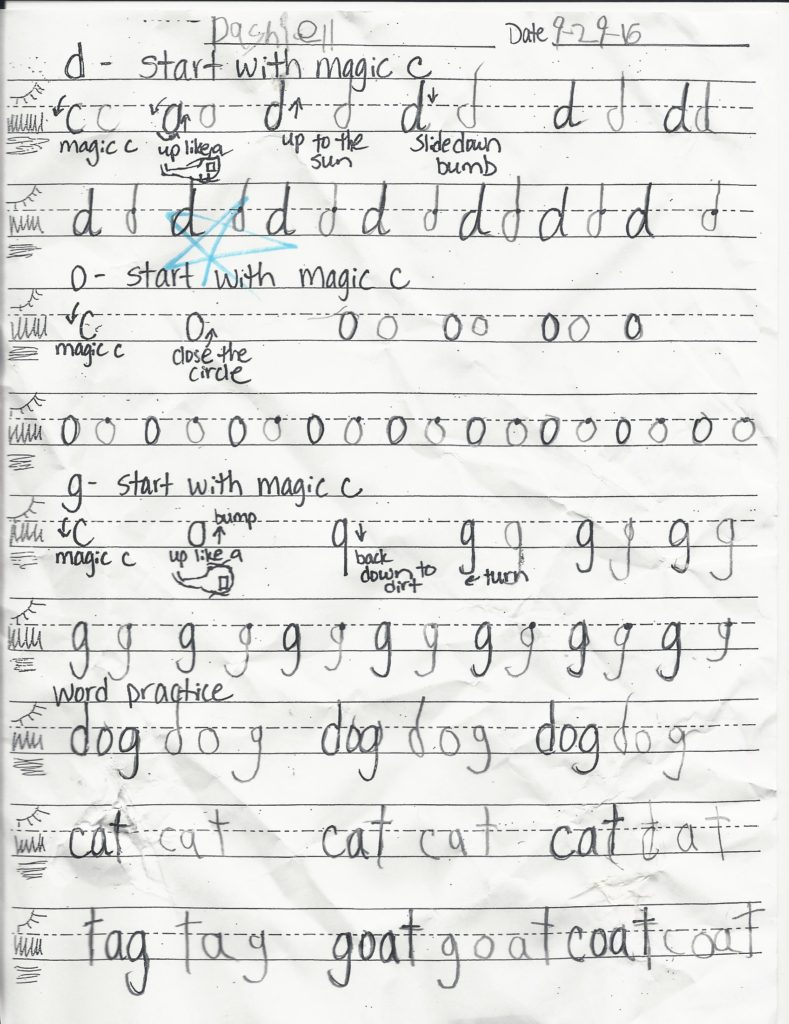 Dashiell Date 9-29-15
d - start with magic c
c c a o d d d d d d d d
magic c up like a up to the sun Slide down bumb
d d d d d d d d d d d d d d
o - start with magic c
c o o o o o o o o
magic c close the circle
o o o o o o o o o o o o o o o o o o
g - start with magic c
c a bump q g g g g g g
magic c up like a back down to dirt turn
g g g g g g g g g g g g g g
word practice
dog dog dog dog dog dog
cat cat cat cat cat cat
tag tag goat goat coat coat